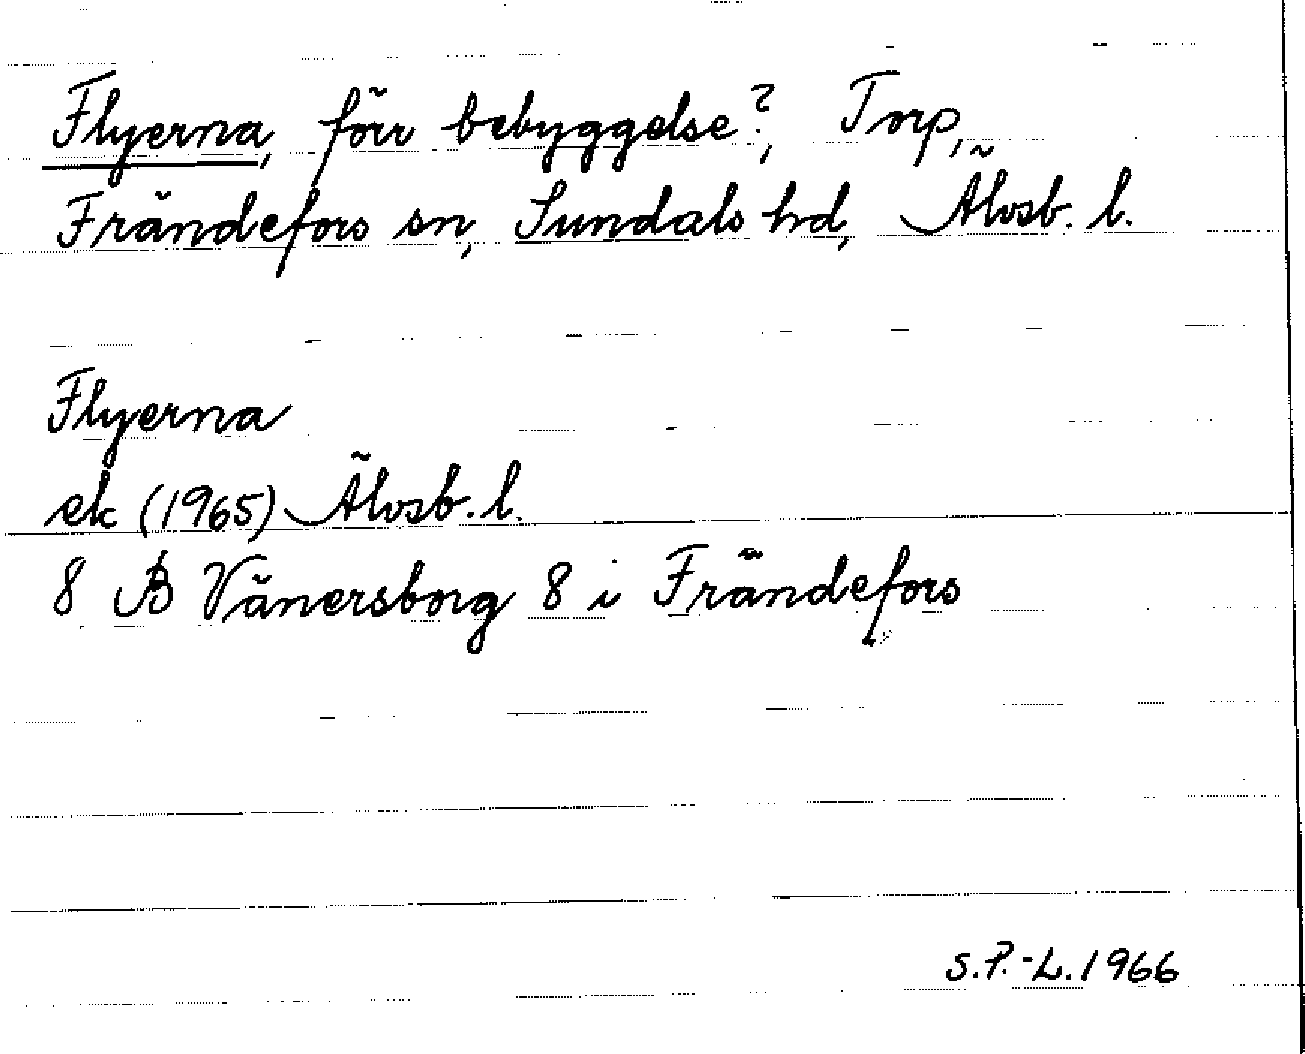 Flyerna, förr bebyggelse?, Torp,
Frändefors sn, Sundals hd, Älvsb. l.
Flyerna
ek (1965) Älvsb. l.
8 B Vänersborg 8 i Frändefors
S.P.-L. 1966